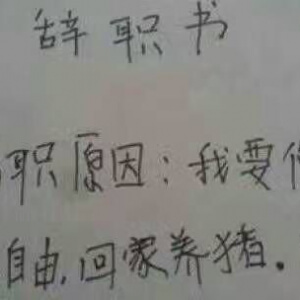 辞职书
职原因：我要
自由，回家养猪。